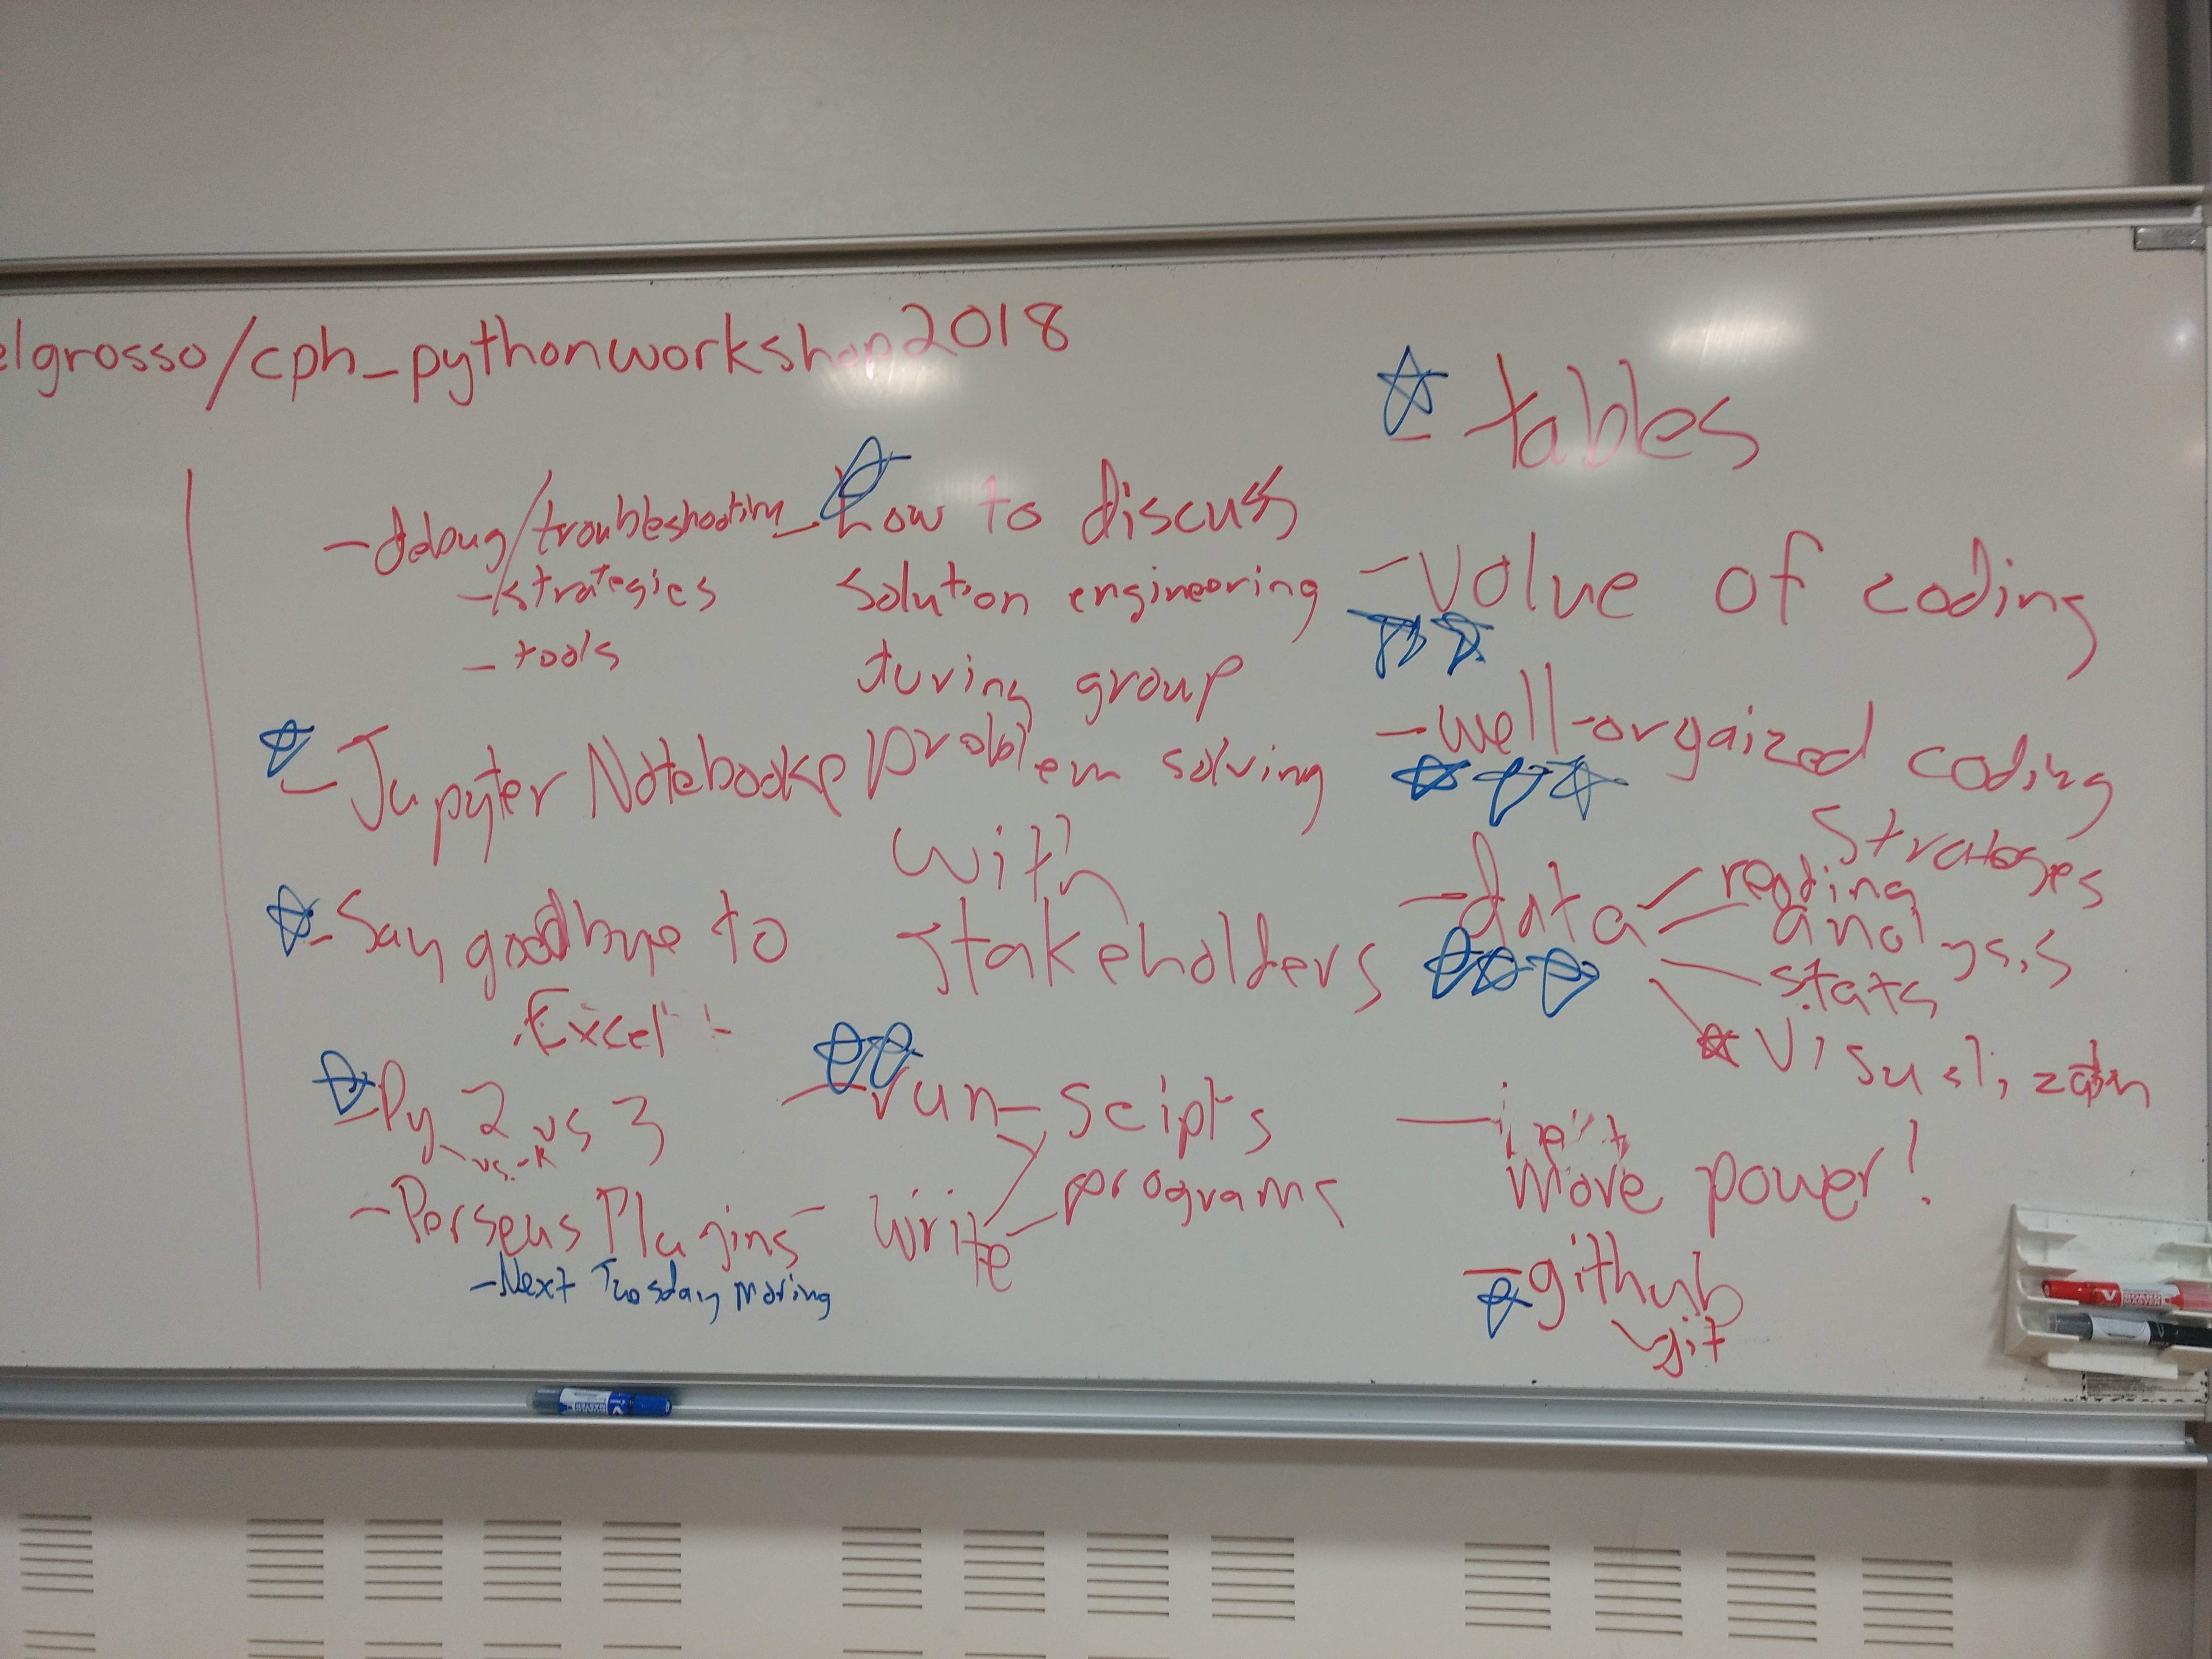 elgrosso/cph_pythonworkshop2018
- debug/troubleshooting
- strategies
- tools
- Jupyter Notebook
- Say goodbye to
Excel
- Py 2 vs 3
vs. R
- Perseus Plugins
- Next Tuesday Moring
- how to discuss
solution engineering
during group
problem solving
with
stakeholders
- run - scipts
- write - programs
- tables
- value of coding
- well-orgaized coding
strateges
- data - reading
analysis
stats
visualization
more power!
- github
git